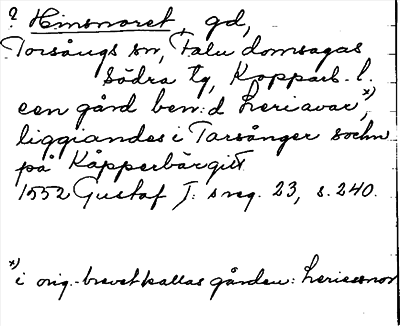 ? Hinsnoret, gd,
Torsångs sn, Falu domsagas
Södra tg, Kopparb. l.
een gård ben:d heriavar*),
liggiandes i Tarsånger sochn
på Kåpperbärgit
1552 Gustaf I: s reg. 23, s. 240.
*) i orig.-brevet kallas gården: heriesnor